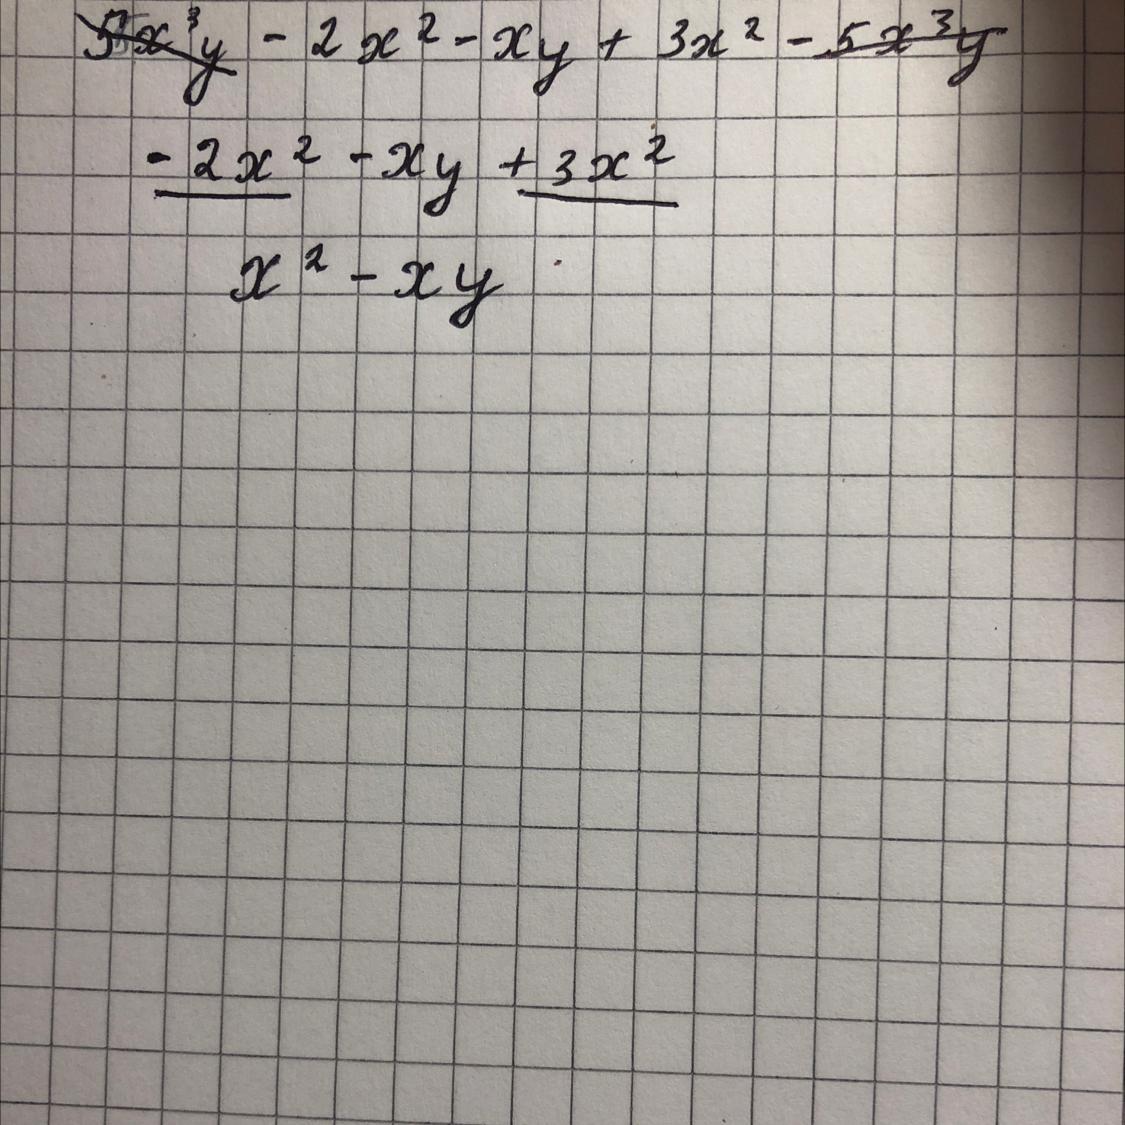 5x³y - 2x² - xy + 3x² - 5x³y
- 2x² - xy + 3x²
x² - xy